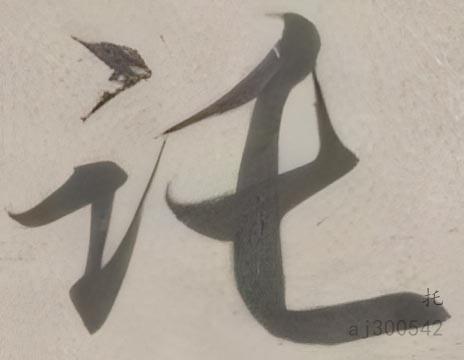 託
托
aj300542